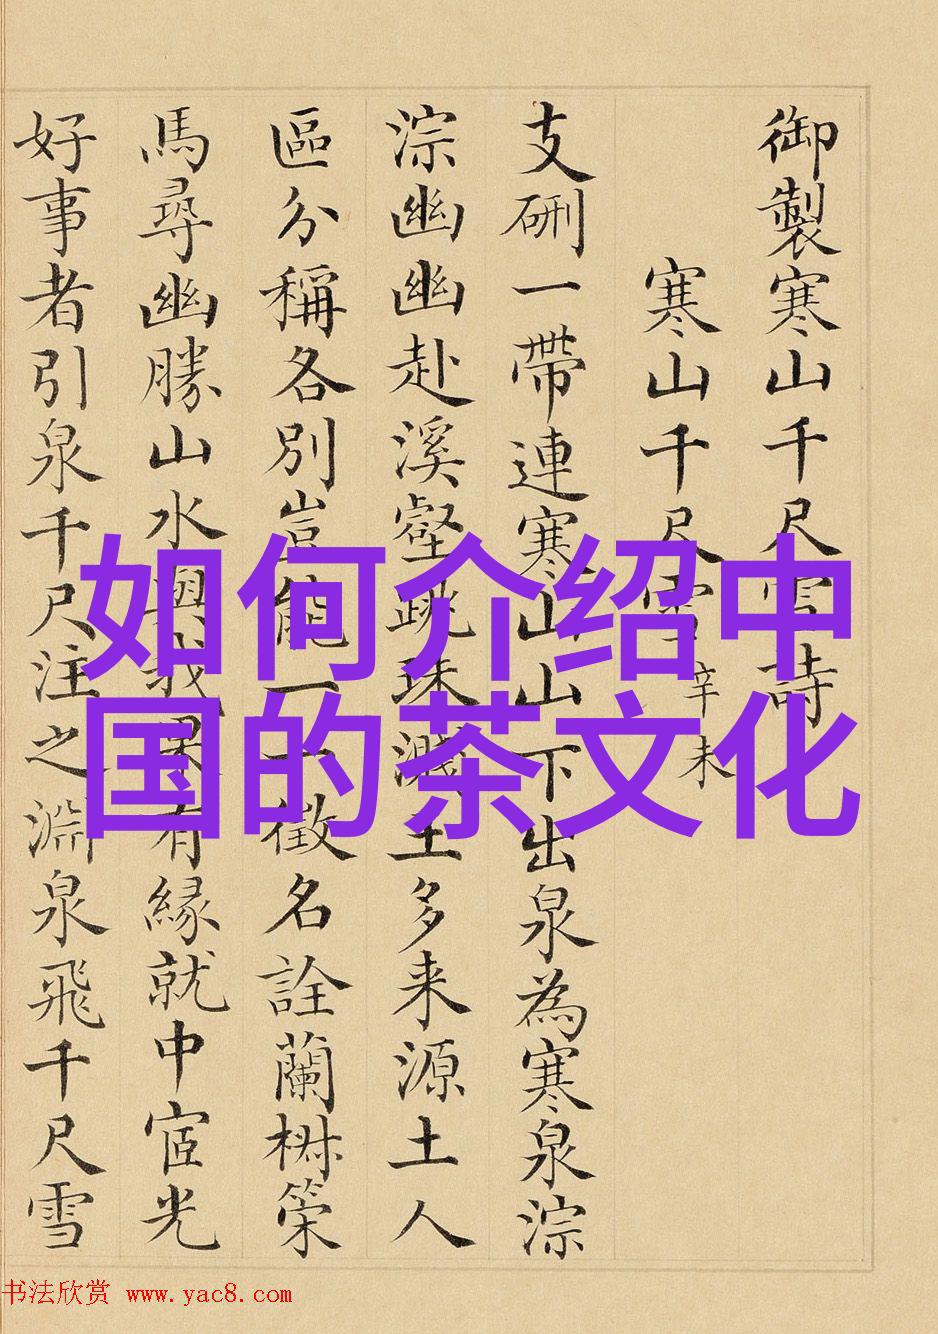 御製寒山千尺雪詩
寒山千尺雪 辛未
支硎一帶連寒山山下出泉為寒泉淙
淙幽幽赴溪壑跳珠濺玉多来源土人
區分稱各別豈能一一徵名詮蘭椒策
馬尋幽勝山水與我果有緣就中宧光
好事者引泉千尺注之淵泉飛千尺雪
如何介绍中
国的茶文化
书法欣赏 www.yac8.com